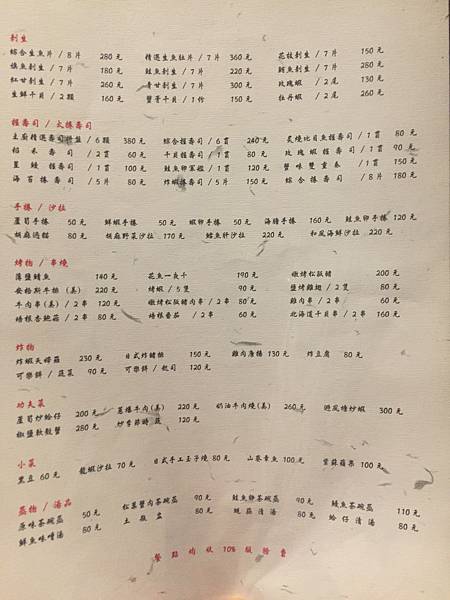 刺生
綜合生魚片 / 8片 280元 精選生魚肚片 / 7片 360元 花枝刺生 / 7片 150元
旗魚刺生 / 7片 180元 鮭魚刺生 / 7片 220元 鮪魚刺生 / 7片 280元
紅甘刺生 / 7片 260元 青甘刺生 / 7片 300元 玫瑰蝦 / 2尾 130元
生鮮干貝 / 2顆 160元 蟹膏干貝 / 1份 150元 牡丹蝦 / 2尾 260元
握壽司 / 太捲壽司
主廚精選壽司拼盤 / 6顆 380元 綜合握壽司 / 6貫 240元 炙燒比目魚握壽司 / 1貫 80元
稻禾壽司 / 2貫 60元 干貝握壽司 / 1貫 80元 玫瑰蝦握壽司 / 1貫 90元
星鰻握壽司 / 1貫 100元 鮭魚卵軍艦 / 1貫 120元 蟹味雙重奏 / 1貫 150元
海苔捲壽司 / 5片 80元 炸蝦捲壽司 / 5片 150元 綜合捲壽司 / 8片 180元
手捲 / 沙拉
蘆筍手捲 50元 鮮蝦手捲 50元 蝦卵手捲 50元 海膽手捲 160元 鮭魚卵手捲 120元
胡麻過貓 80元 胡麻野菜沙拉 170元 鱈魚肝沙拉 220元 和風海鮮沙拉 220元
烤物 / 串燒
薄鹽鯖魚 140元 花魚一夜干 190元 嫩烤松阪豬 200元
安格斯牛排(美) 220元 烤蝦 / 5隻 90元 鹽烤雞翅 / 2隻 80元
牛肉串(美) / 2串 120元 嫩烤松阪豬肉串 / 2串 80元 雞肉串 / 2串 60元
培根杏鮑菇 / 2串 80元 培根番茄 / 2串 60元 北海道干貝串 / 2串 160元
炸物
炸蝦天婦羅 230元 日式炸豬排 150元 雞肉唐揚 130元 炸豆腐 80元
可樂餅 / 蔬菜 90元 可樂餅 / 起司 120元
功夫菜
蘆筍炒蛤仔 200元 蔥爆牛肉(美) 220元 奶油牛肉燒(美) 260元 避風塘炒蝦 300元
椒鹽軟殼蟹 280元 炒季節時蔬 120元
小菜
黑豆 60元 龍蝦沙拉 70元 日式手工玉子燒 80元 山葵章魚 100元 紫蘇蘋果 100元
蒸物 / 湯品
原味茶碗蒸 50元 松葉蟹肉茶碗蒸 90元 鮭魚卵茶碗蒸 90元 鰻魚茶碗蒸 110元
鮮魚味噌湯 80元 土瓶蒸 80元 蛤蜊清湯 80元 蛤仔清湯 80元
餐點均收10%服務費